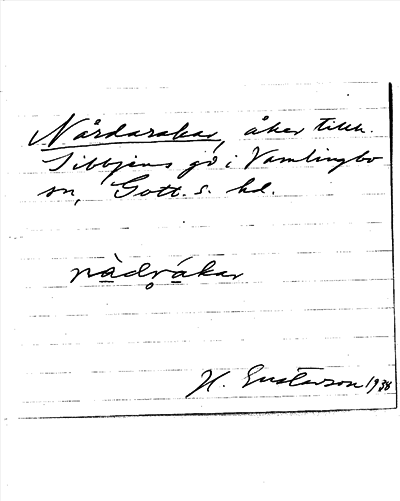 Nårdaråkar, åker tillh.
Sibbjäns gd i Vamlingbo
sn, Gotl. s. hd.
nàdr̥ákar
H. Gustavson 1938